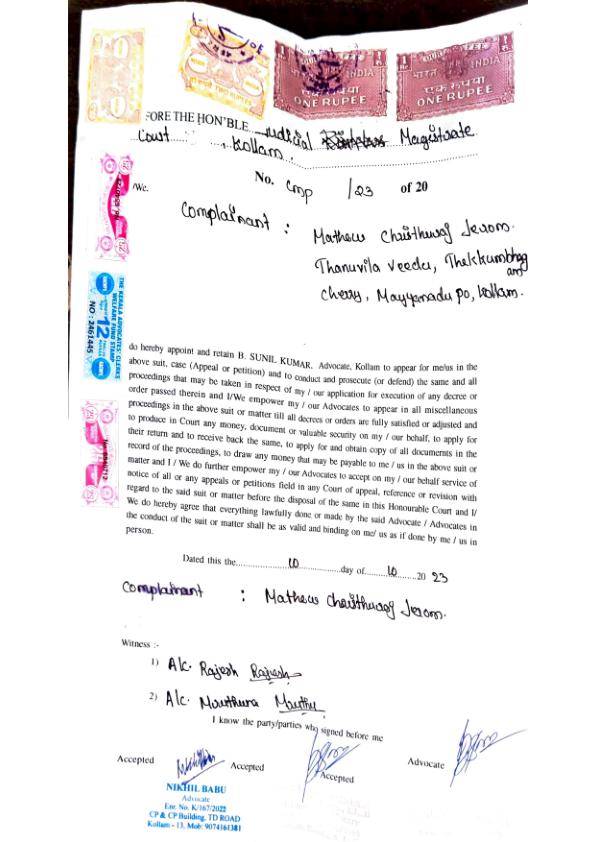 1 COURT FEE 1
Re. भारत INDIA Re.
एक रुपया
ONE RUPEE
भारत INDIA
एक रुपया
ONE RUPEE
FORE THE HON'BLE Judicial Magistrate
Court Kollam.
No. Cmp /23 of 20
/We.
Complainant :
Mathew Jerom.
Thanuvila Veedu,
cherry, Mayyanadu po, Kollam.
THE KERALA ADVOCATES' CLERKS
WELFARE FUND STAMP
12
NO : 2461445
do hereby appoint and retain B. SUNIL KUMAR, Advocate, Kollam to appear for me/us in the
above suit, case (Appeal or petition) and to conduct and prosecute (or defend) the same and all
proceedings that may be taken in respect of my / our application for execution of any decree or
order passed therein and I/We empower my / our Advocates to appear in all miscellaneous
proceedings in the above suit or matter till all decrees or orders are fully satisfied or adjusted and
to produce in Court any money, document or valuable security on my / our behalf, to apply for
their return and to receive back the same, to apply for and obtain copy of all documents in the
record of the proceedings, to draw any money that may be payable to me / us in the above suit or
matter and I / We do further empower my / our Advocates to accept on my / our behalf service of
notice of all or any appeals or petitions field in any Court of appeal, reference or revision with
regard to the said suit or matter before the disposal of the same in this Honourable Court and I/
We do hereby agree that everything lawfully done or made by the said Advocate / Advocates in
the conduct of the suit or matter shall be as valid and binding on me/ us as if done by me / us in
person.
Dated this the 10 day of 10 20 23
Complainant : Mathew Jerom.
Witness :-
1) A/c. Rajesh Rajesh
2) A/c.
I know the party/parties who signed before me
Accepted Accepted Accepted Advocate
NIKHIL BABU
Advocate
Enr. No. K/167/2022
CP & CP Building, TD ROAD
Kollam - 13, Mob: 9074161381